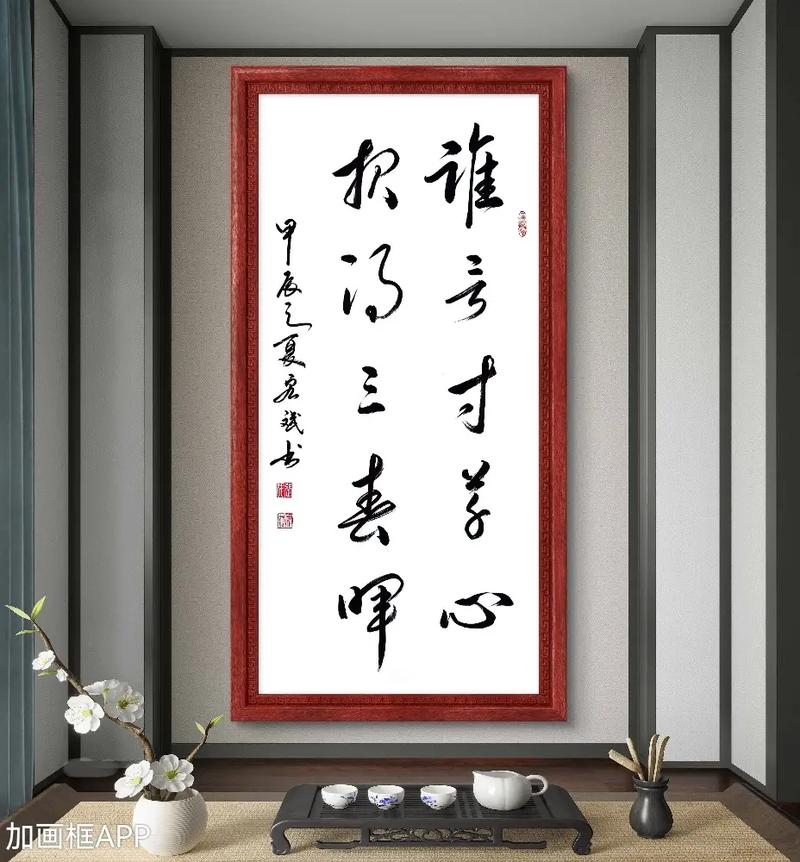 誰言寸草心
报得三春暉
甲辰之夏斌书
加画框APP